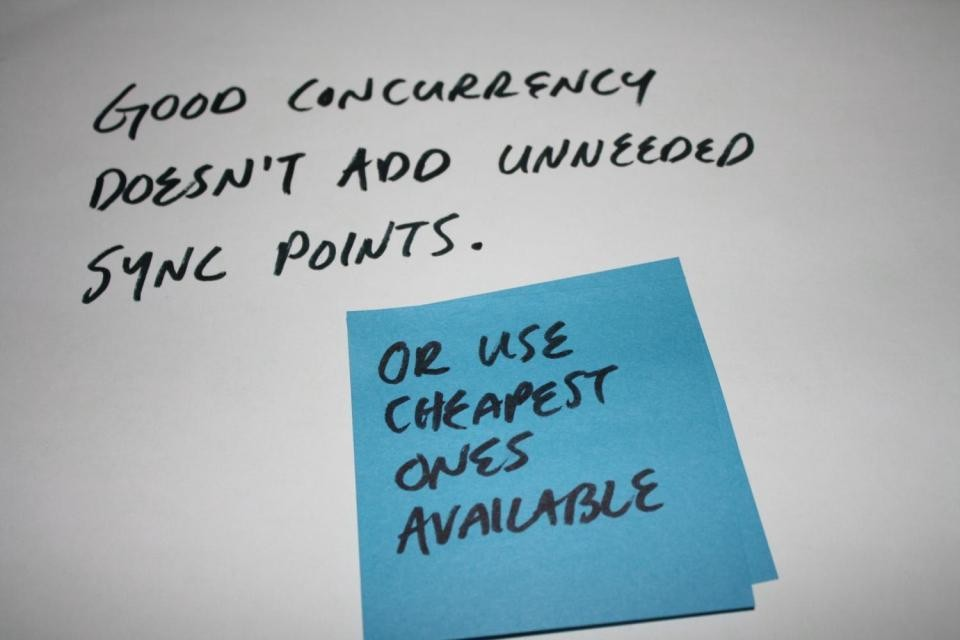 GOOD CONCURRENCY
DOESN'T ADD UNNEEDED
SYNC POINTS.
OR USE
CHEAPEST
ONES
AVAILABLE